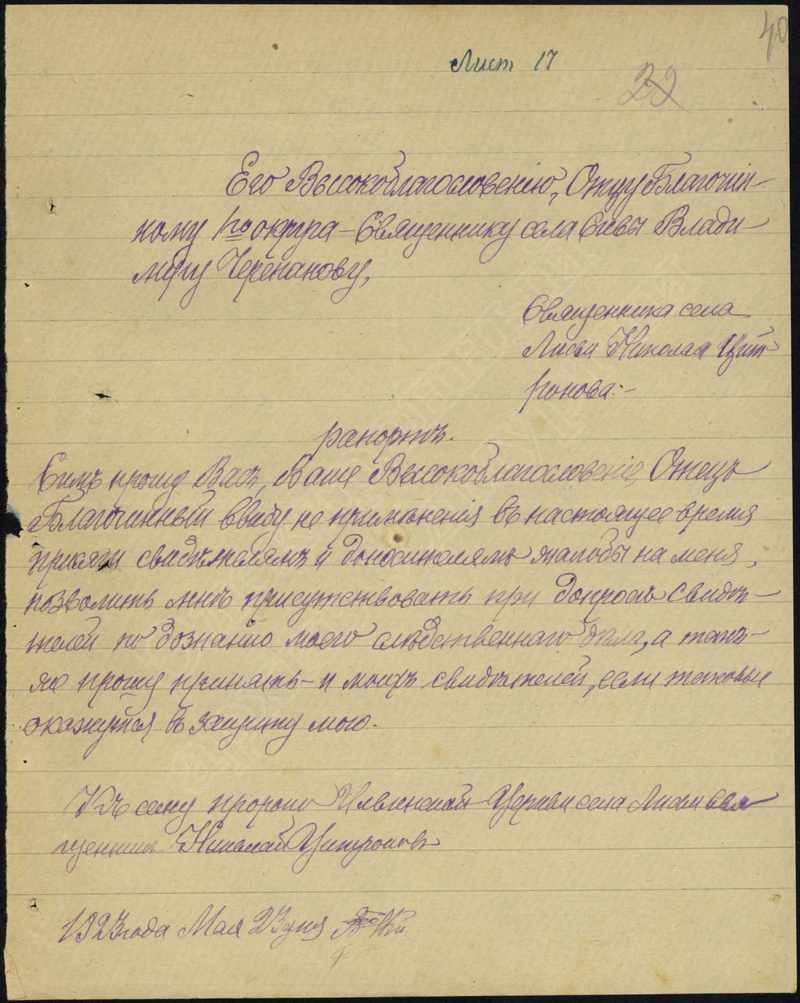 40
Лист 17
29
Его Высокоблагословенію, Отцу Благочин-
ному 1го округа – Священнику села Сивы Влади-
миру Черепанову,
Священника села
Лисьи Николая Цит-
ронова:-
рапортъ.
Симъ прошу Васъ, Ваше Высокоблагословеніе, Отецъ
Благочинный ввиду не примѣненія въ настоящее время
присяги свидѣтелямъ и доносителямъ жалобы на меня,
позволить мнѣ присутствовать при допросѣ свидѣ-
телей по дознанію моего слѣдственнаго дѣла, а такъ-
же прошу принять – и моихъ свидѣтелей, если таковые
окажутся въ защиту мою.
Къ сему Церкви села Лисьи Свя-
щенникъ Николай Цитроновъ
1923 года Мая 23 дня